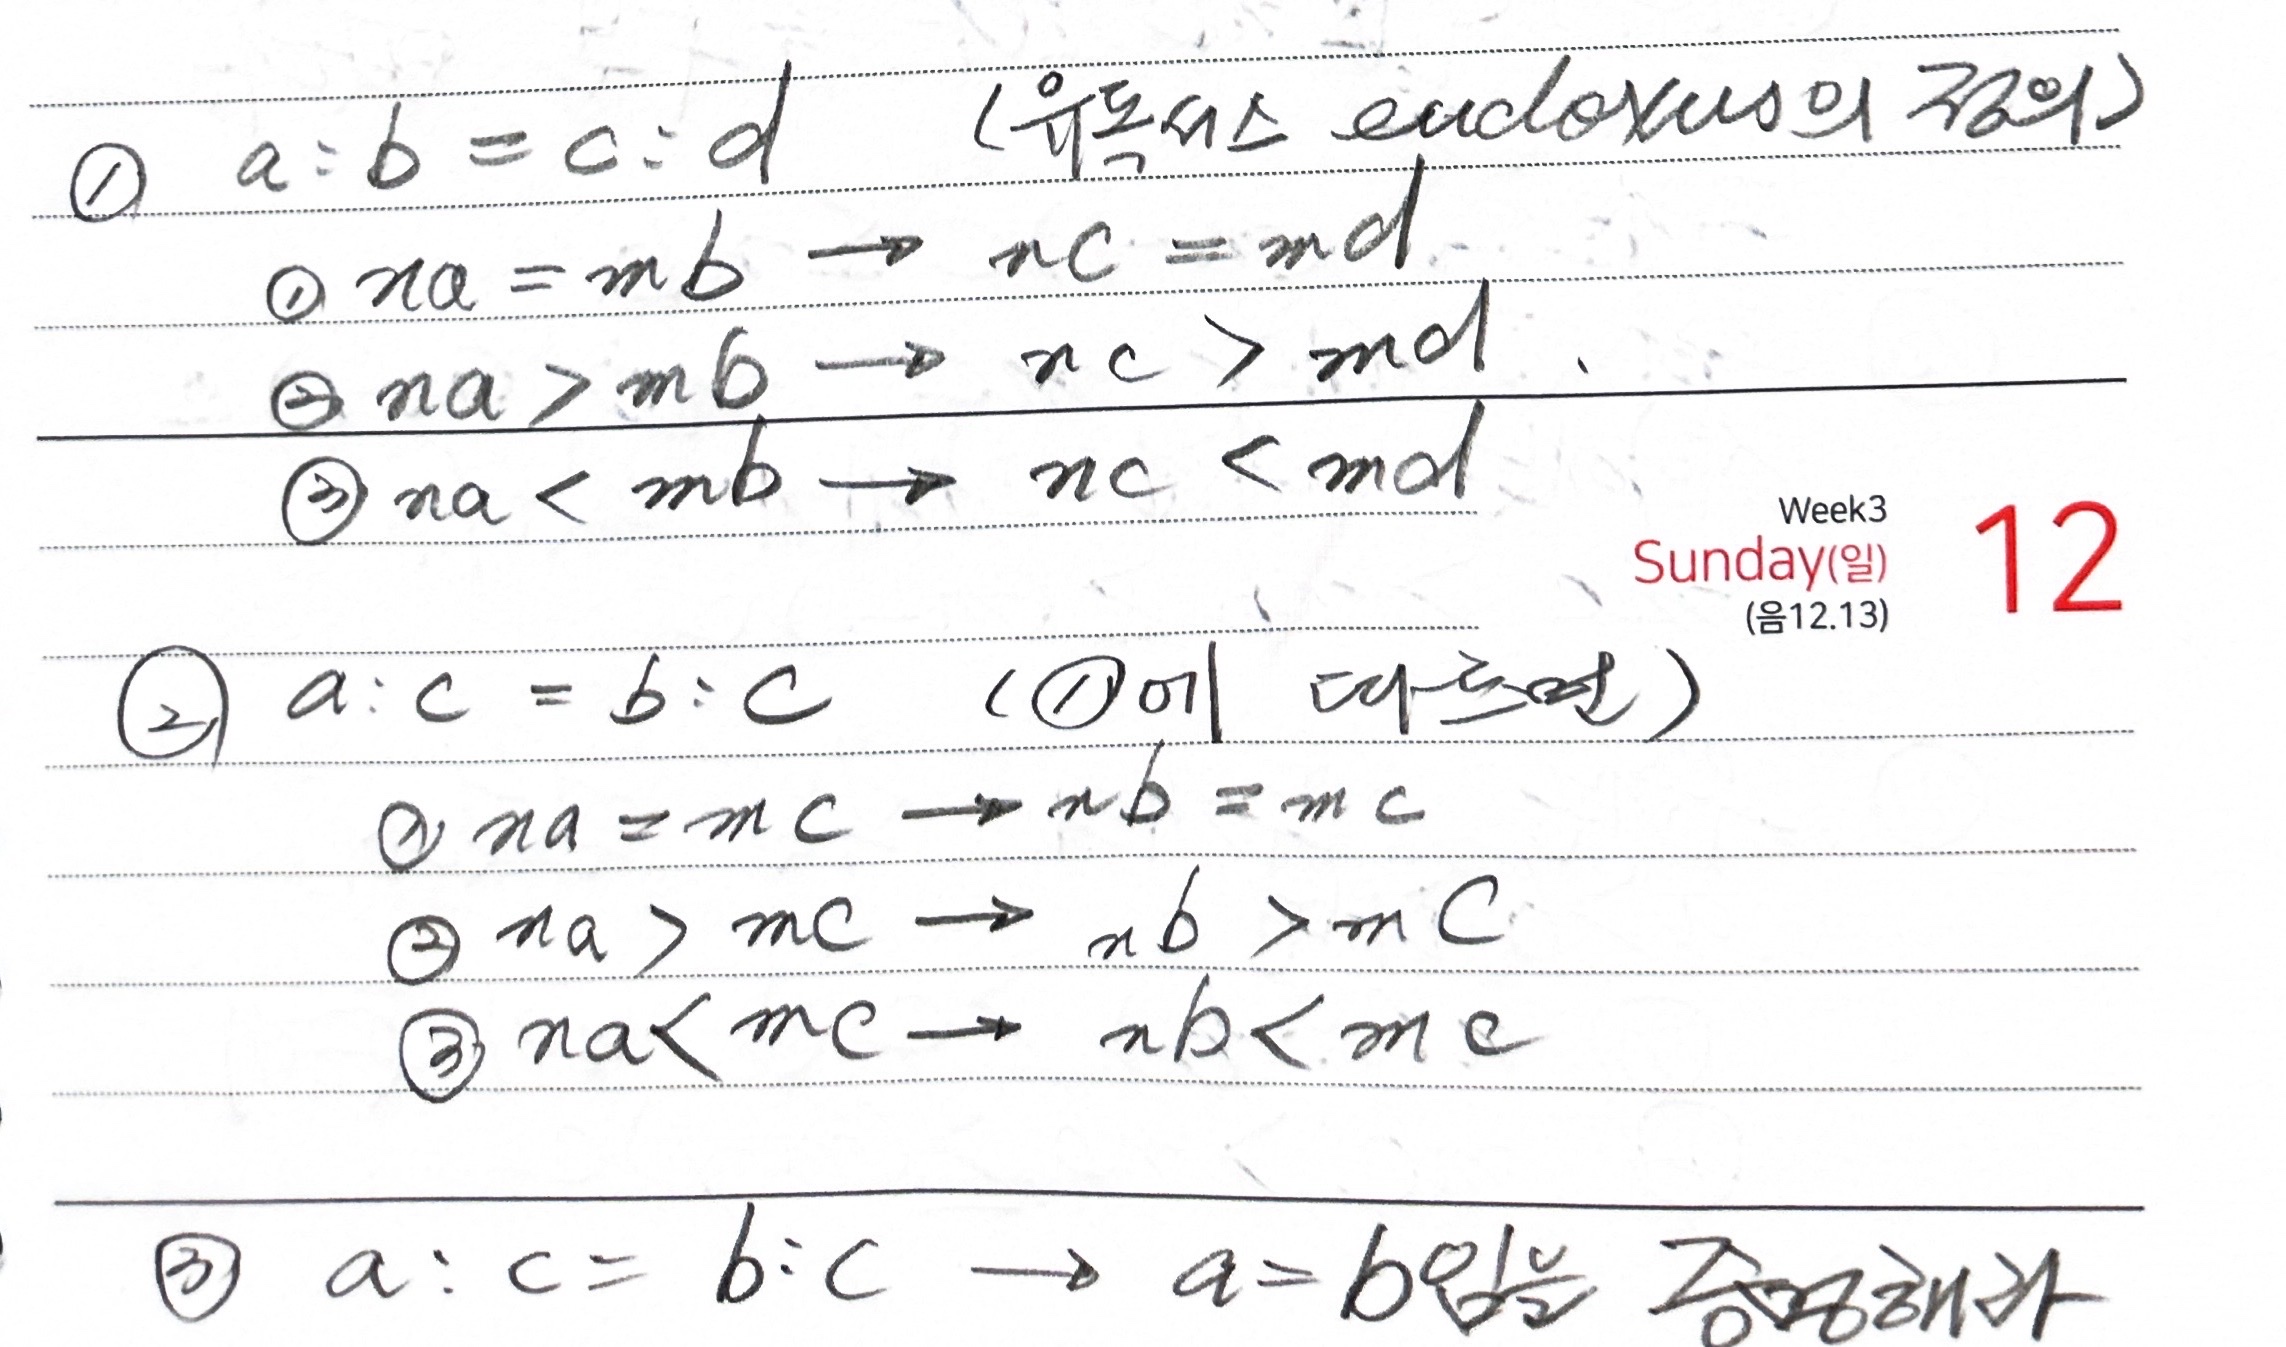 ① a:b = c:d (유독서스 eudoxus의 정의)
① na = mb → nc = md
② na > mb → nc > md.
③ na < mb → nc < md
Week3
Sunday(일) 12
(음12.13)
② a:c = b:c (①에 따르면)
① na = mc → nb = mc
② na > mc → nb > mc
③ na < mc → nb < mc
③ a:c = b:c → a=b임을 증명해라